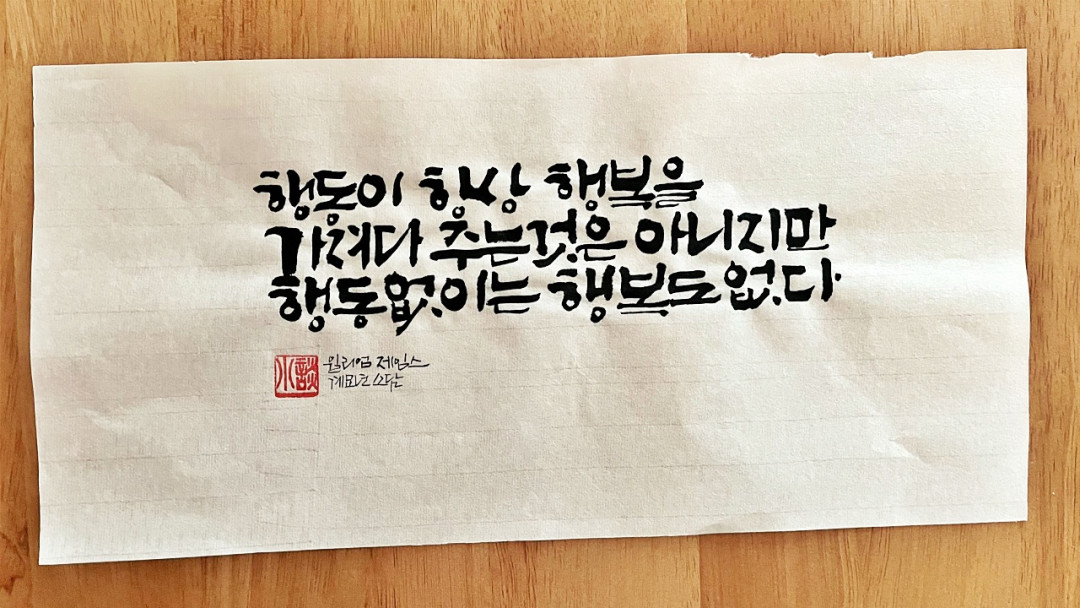 행동이 항상 행복을
가져다 주는것은 아니지만
행동없이는 행복도없다.
윌리엄 제임스
계묘년 소담
小談